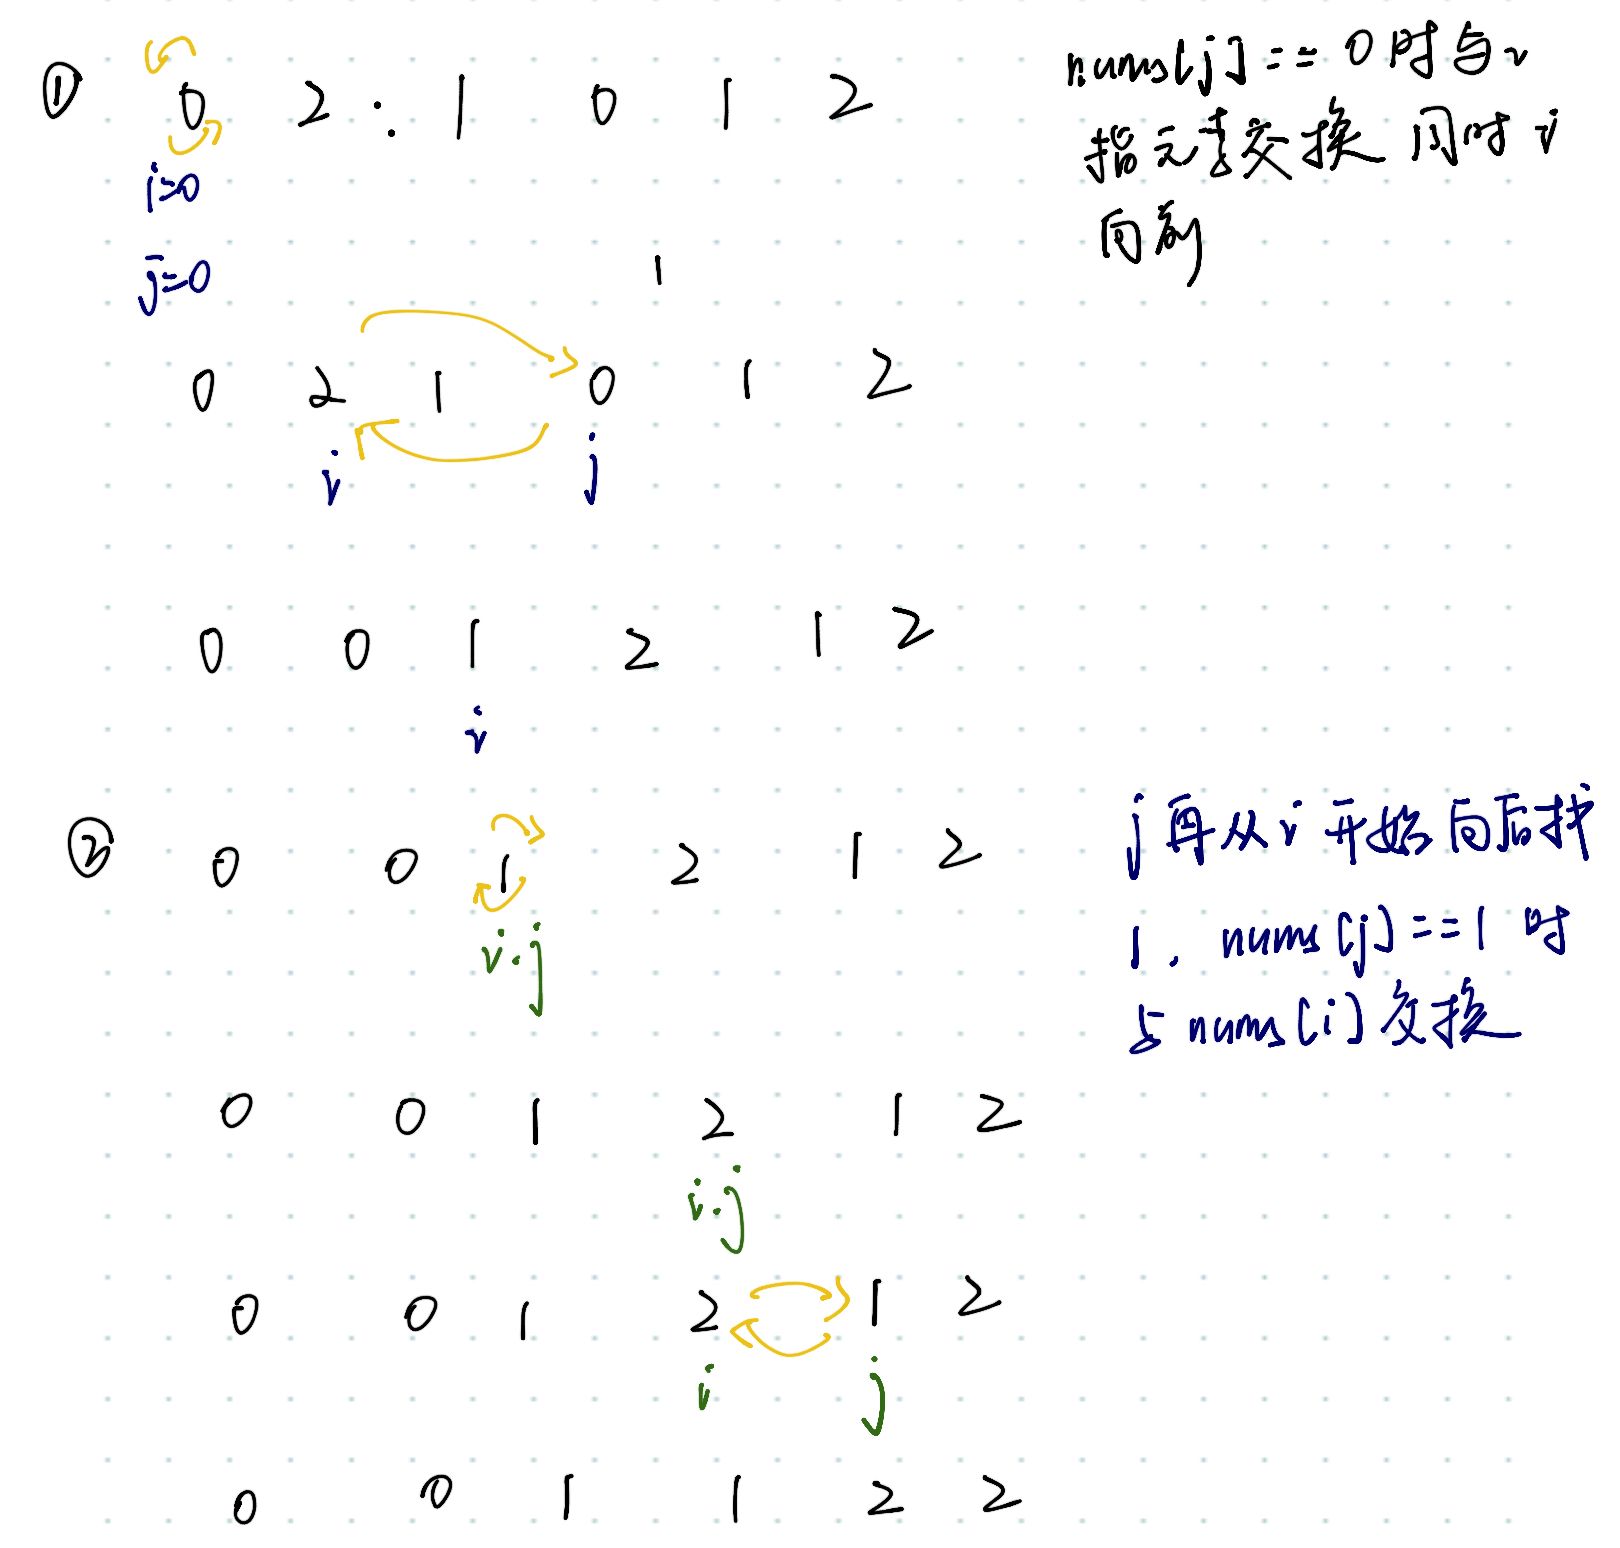 ① 0 2 : 1 0 1 2
nums[j] == 0 时与i
指元素交换 同时 i
向前
i=0
j=0
1
0 2 1 0 1 2
i j
0 0 1 2 1 2
i
② 0 0 1 2 1 2
i.j
j 再从 i 开始向后找
1, nums[j]==1 时
与 nums[i] 交换
0 0 1 2 1 2
i.j
0 0 1 2 1 2
i j
0 0 1 1 2 2